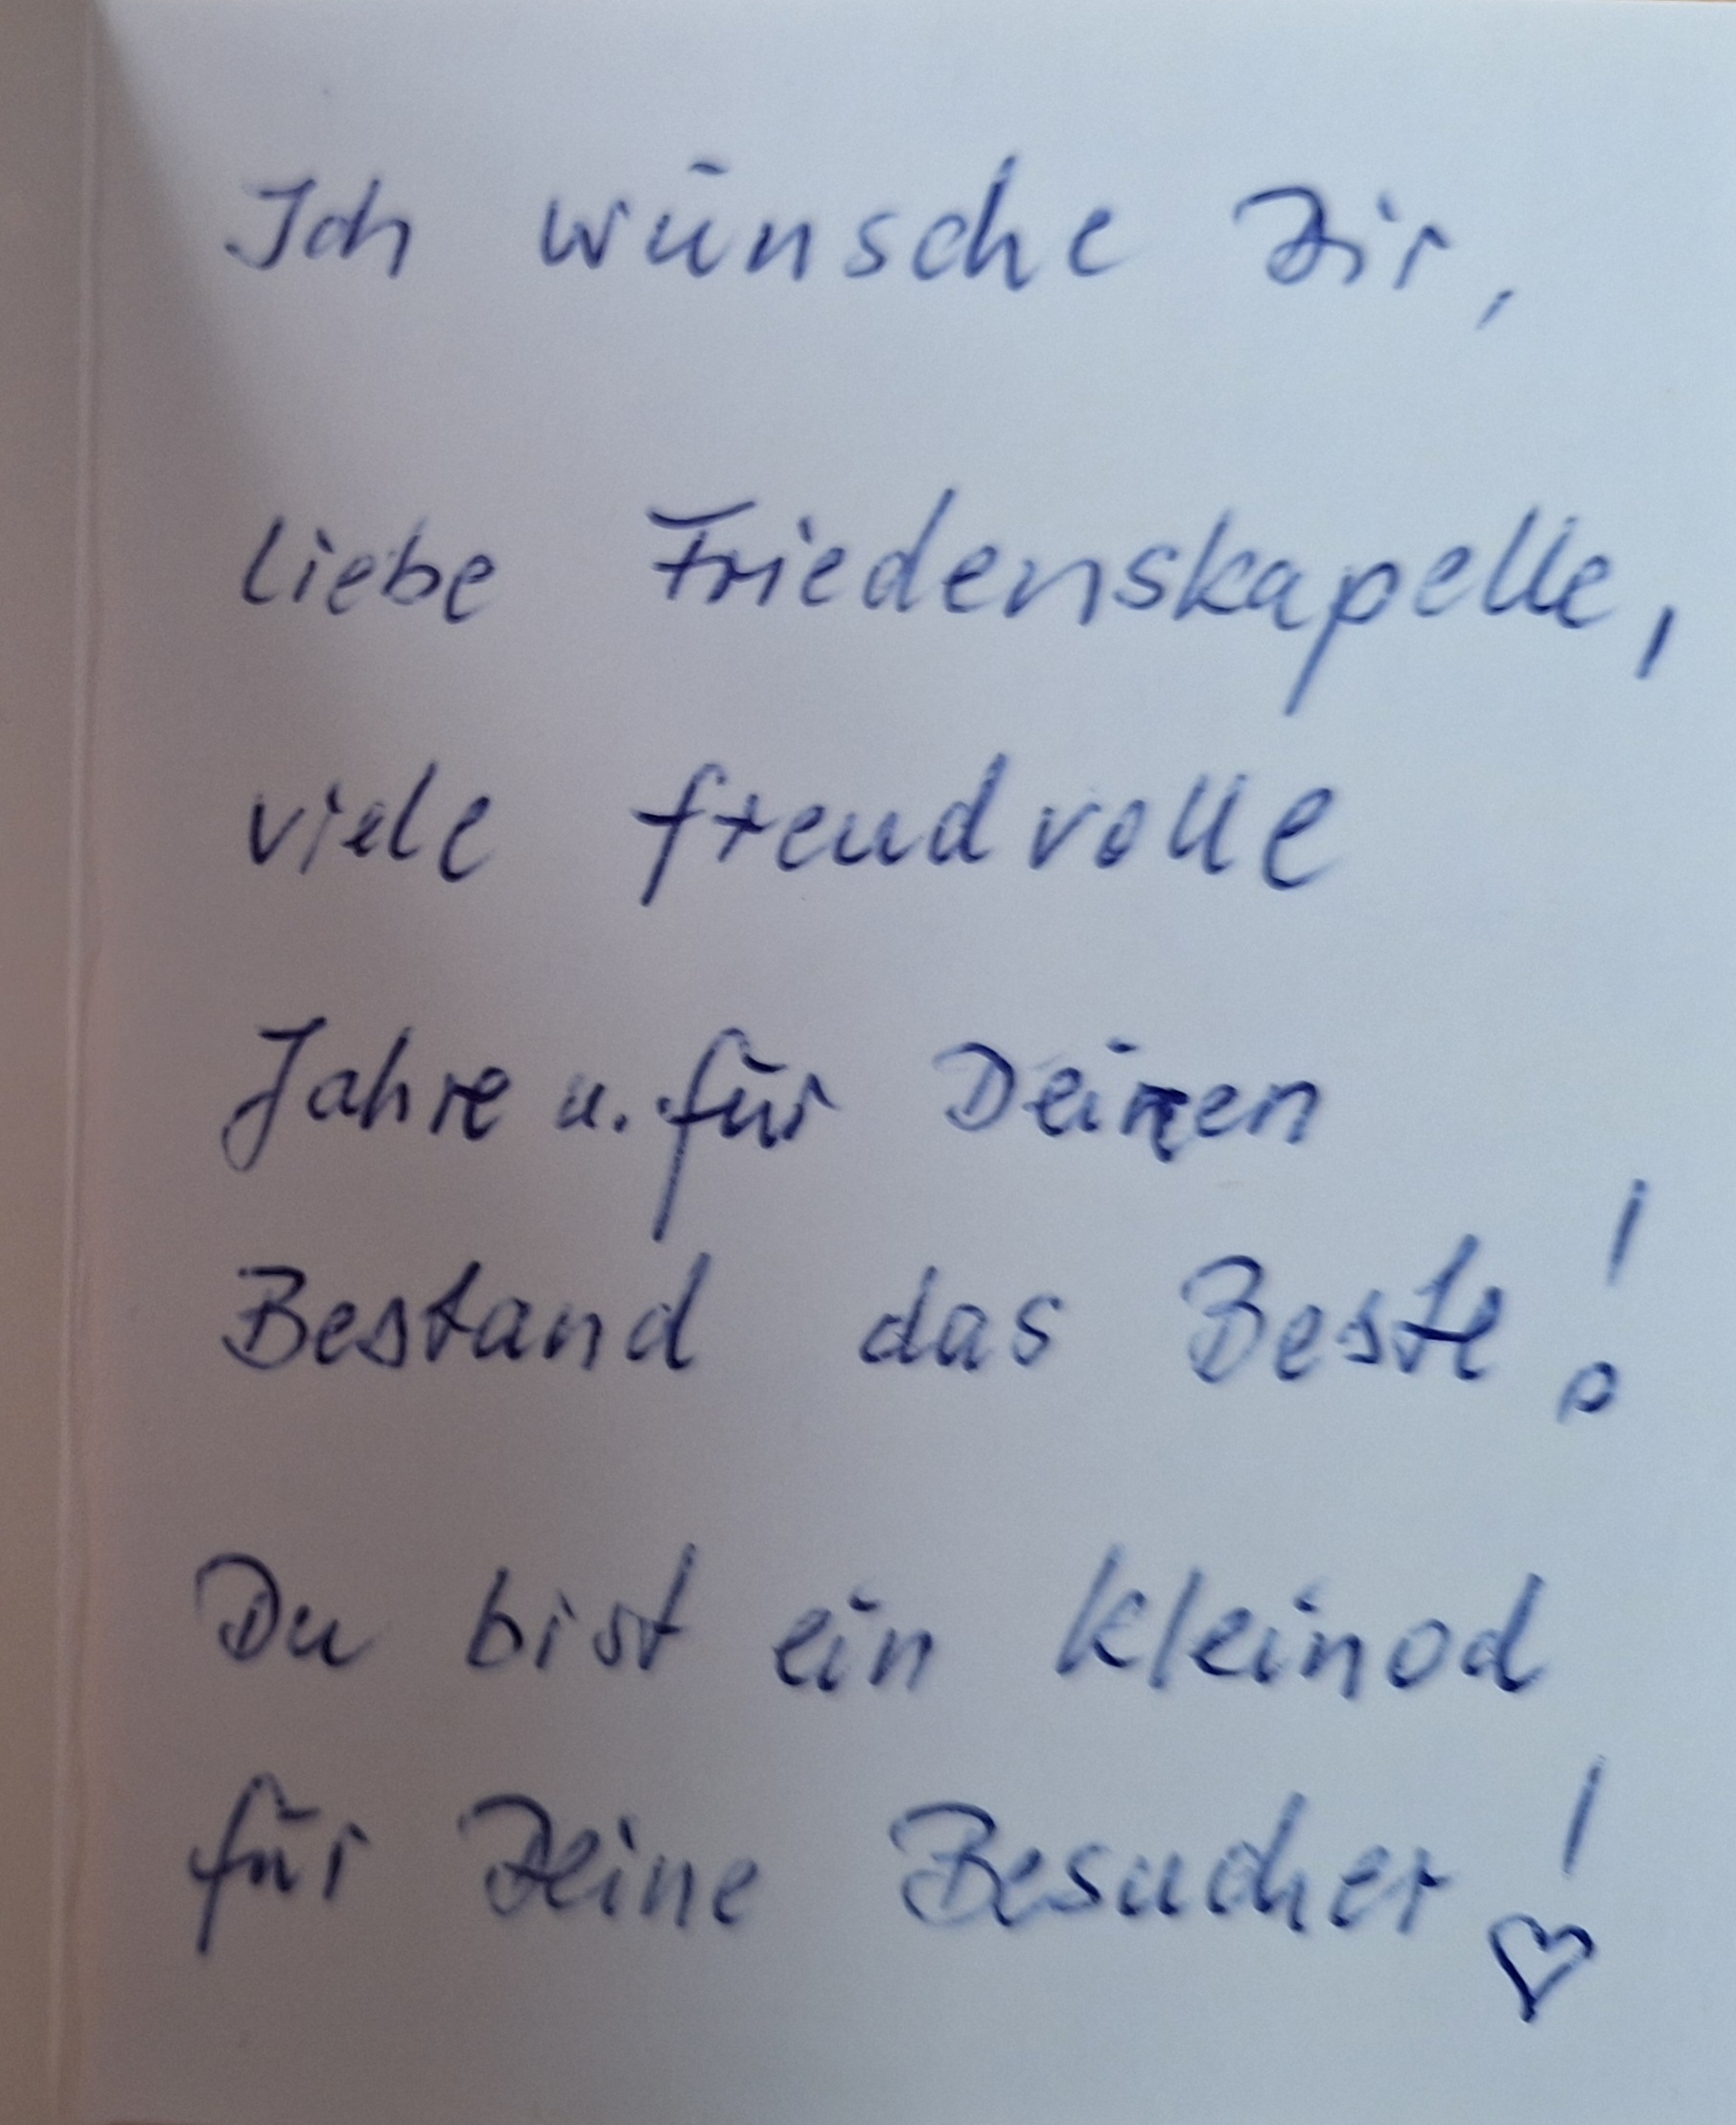 Ich wünsche Dir,
liebe Friedenskapelle,
viele freudvolle
Jahre u. für Deinen
Bestand das Beste!
Du bist ein Kleinod
für Deine Besucher!